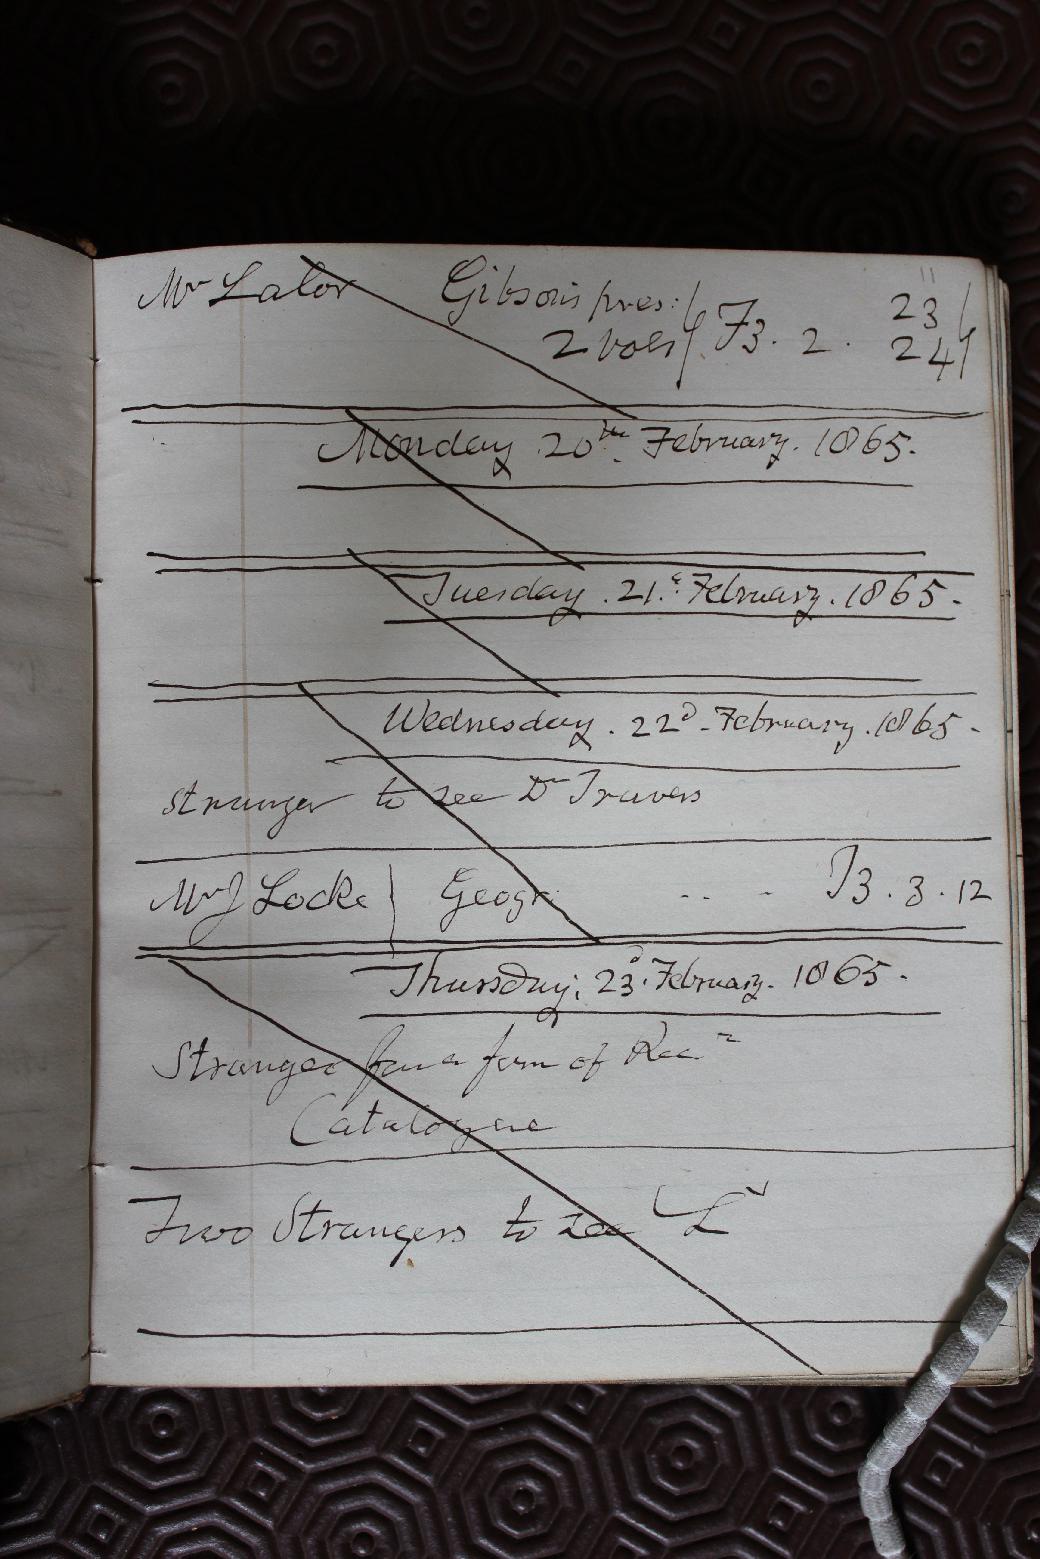 Mr Lalor Gibson's pres: F3. 2. 23
2 vols 24
Monday 20th February. 1865.
Tuesday. 21st February. 1865.
Wednesday. 22d February. 1865.
Stranger to see Dr Travers
Mr J Locke Geogr .. - J3. 3. 12
Thursday. 23d February. 1865.
Stranger for a form of Recn
Catalogue
Two Strangers to see Ly